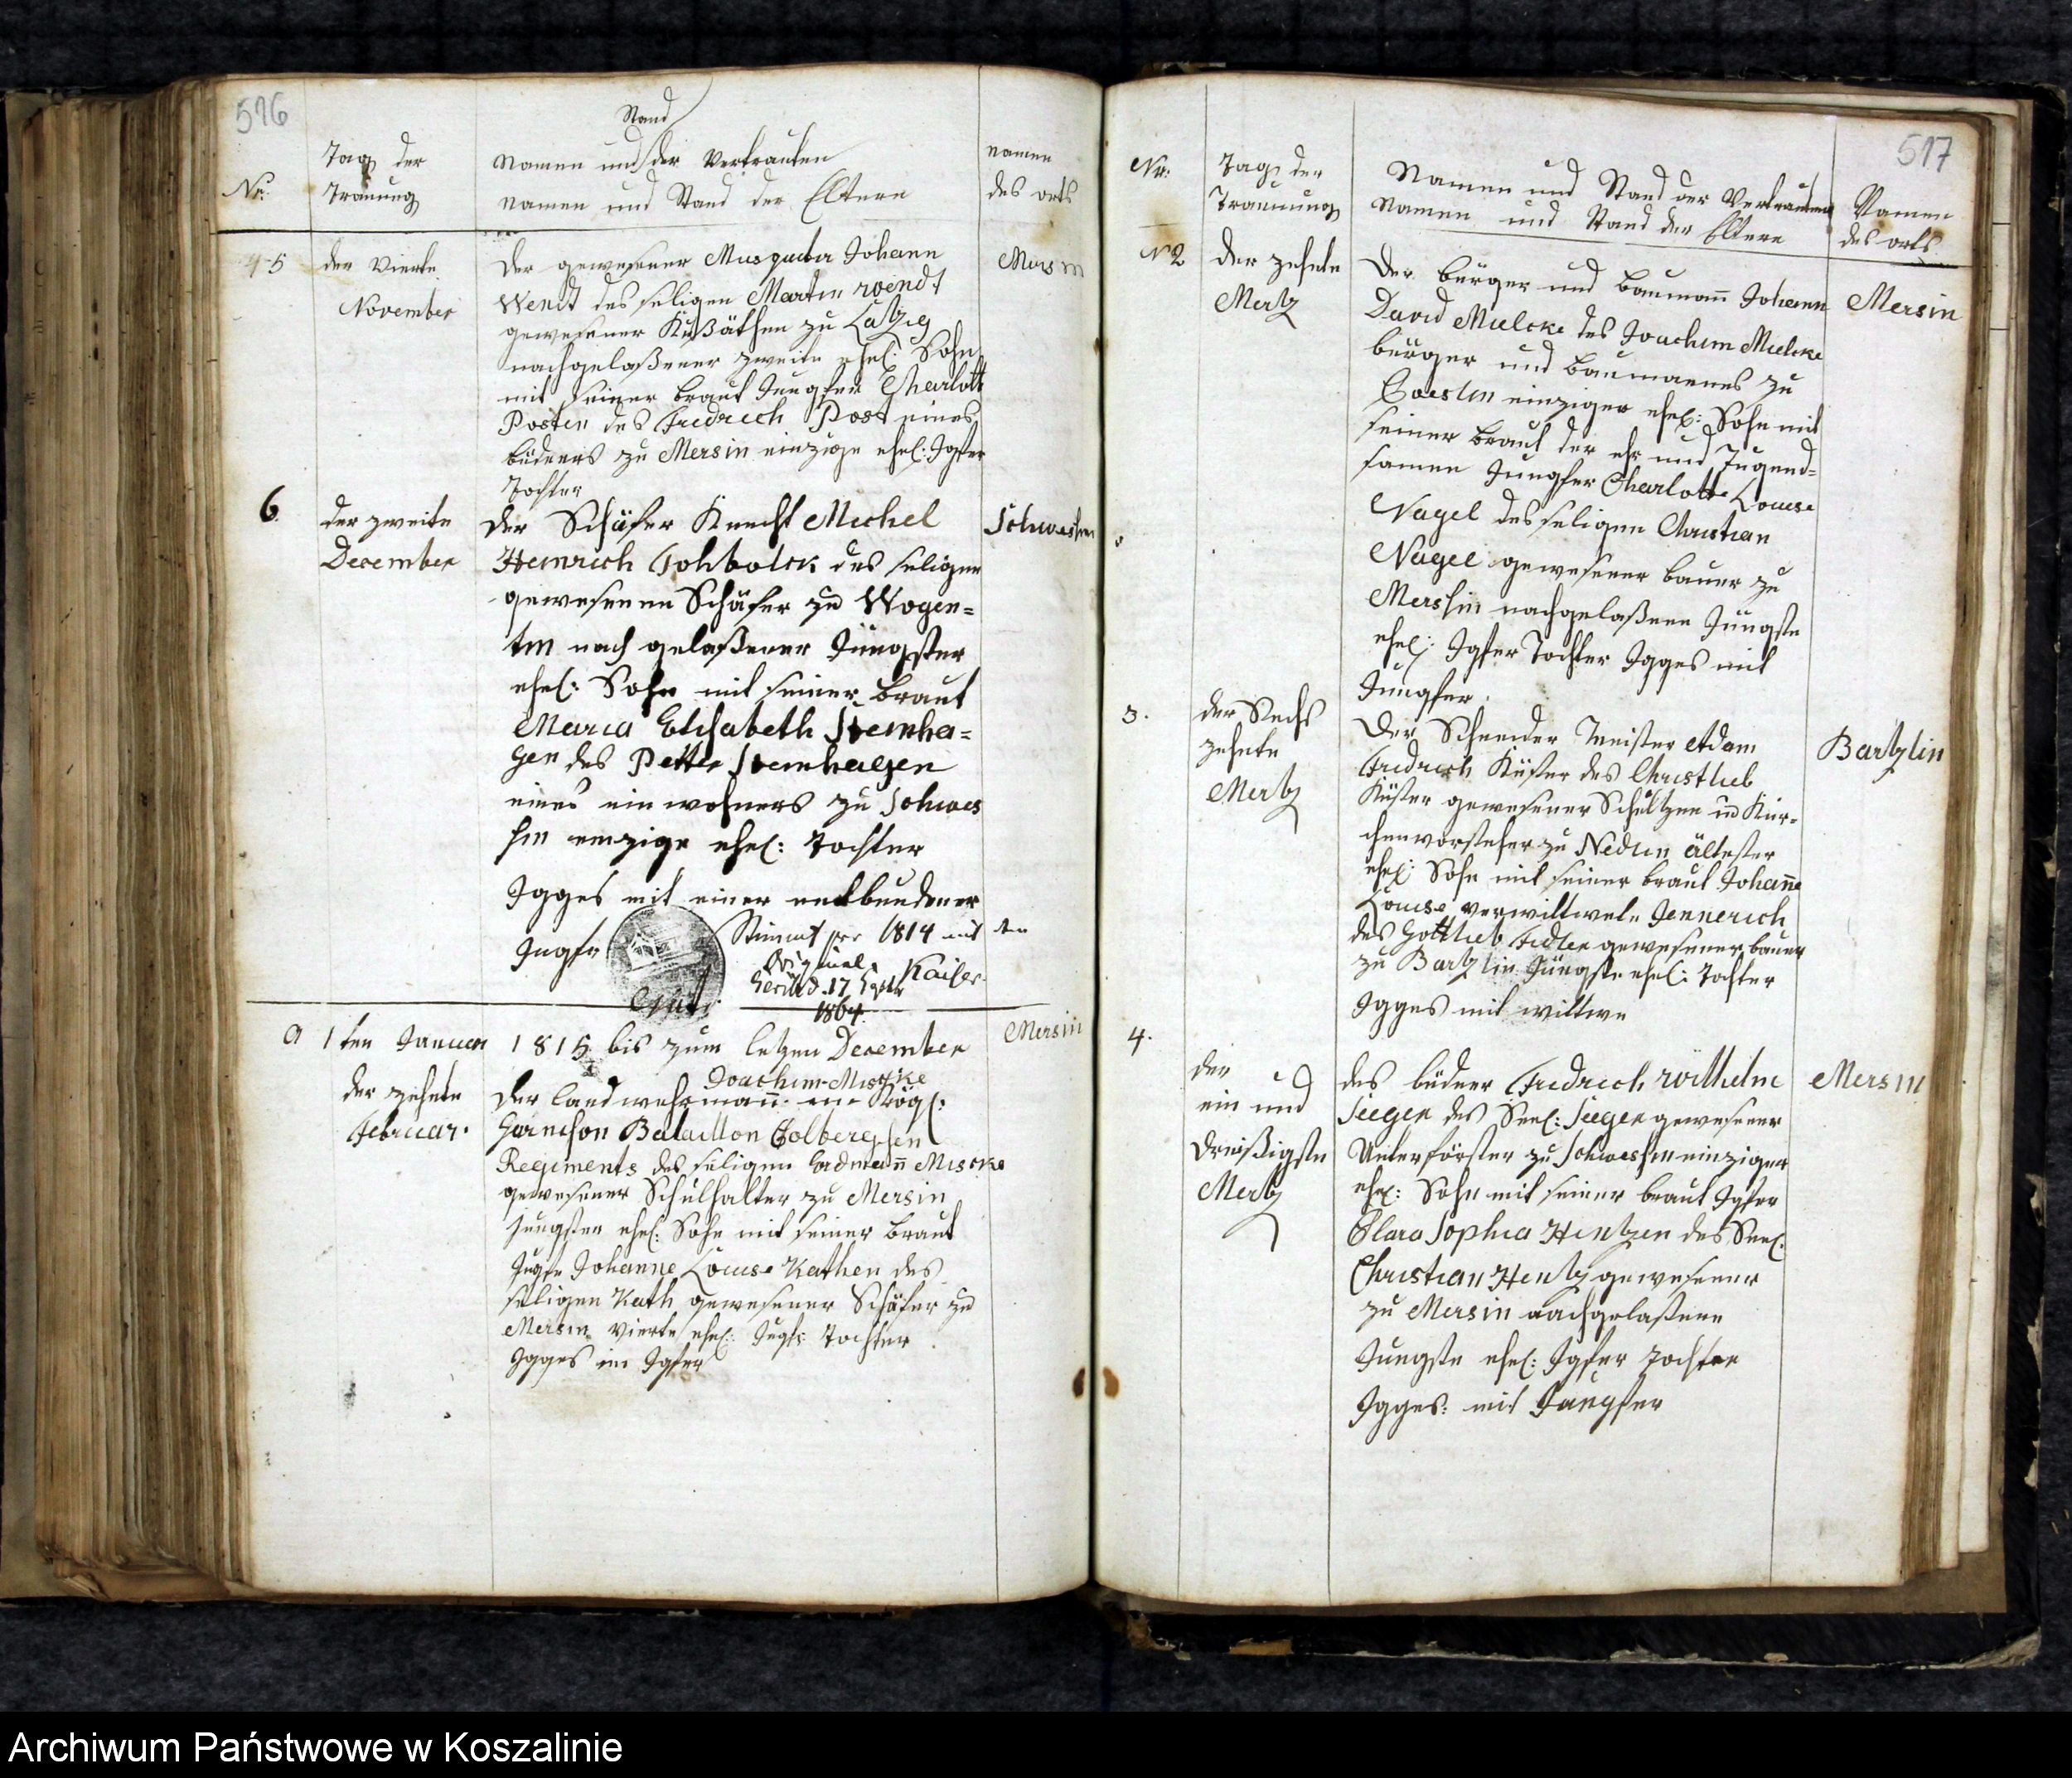 516
Stand
Nr:
Tag der
Trauung
Namen und der Vertrauten
Namen und Stand der Eltern
Namen
des orts
5
der Vierte
November
Der gewesener Musquetir Johann
Wendt des seligen Martin Wendt
gewesener Koßäthen zu Latzig
nachgelaßener zweite ehel: Sohn
mit seiner braut Jungfer Charlott
Posten des Fridrich Post eines
büdners zu Mersin einzige ehel: Jgfer
Tochter
Mersin
6.
der zweite
December
Der Schäfer Knecht Michel
Heinrich des seligen
gewesenen Schäfer zu Wogen=
tin nach gelaßener Jüngster
ehel: Sohn mit seiner braut
Maria Elisabeth Steinha=
gen des Petter Steinhagen
eines einwohners zu Schwes
sin einzige ehel: Tochter
Jgges mit einer entbundener
Jngfr
Schwessin
Stimmt pro 1814 mit dem
Original.
d. 17
1864.
Kaiser
1 ten Januar 1815 bis zum letzen December
Mersin
der zehnte
Februar.
Joachim Mischke
Der landwehrmann Königl:
Garnison Bataillon Colbergschen
Regiments des seligen Erdmann Mischke
gewesener Schulhalter zu Mersin
jüngster ehel: Sohn mit seiner braut
Jngfr Johanne Louise Kathen des
seligen Kath gewesener Schäfer zu
Mersin vierte ehel: Jngfr Tochter
Jgges mit Jgfer
517
Nr:
Tag der
Trauung
Namen und Stand der Vertrauten
Namen und Stand der Eltern
Namen
des orts
N 2
der zehnte
Mertz
Der bürger und baumann Johann
David Mielcke des Joachim Mielcke
bürger und baumannes zu
Coeslin einziger ehel: Sohn mit
seiner braut der ehr und Tugend=
samen Jungfer Charlotte Louise
Nagel des seligen Christian
Nagel gewesener bauer zu
Mersin nachgelaßene Jüngste
ehel: Jgfer Tochter Jgges mit
Jungfer.
Mersin
3.
der Sechs
zehnte
Mertz
Der Schneider Meister Adam
Fridrich Küster des Christlieb
Küster gewesener Schultzen u Kir=
chenvorsteher zu Nedlin ältester
ehel: Sohn mit seiner braut Johanne
Louise verwittwete Jennerich
des Gottlieb Fidler gewesener bauer
zu Bartzlin Jüngste ehel: Tochter
Jgges mit wittwe
Bartzlin
4.
der
ein und
dreißigste
Mertz
des büdner Fridrich Wilhelm
Seeger des Seel: Seeger gewesener
Unterförster zu Schwessin einziger
ehel: Sohn mit seiner braut Jgfer
Clara Sophia Hintzen des Seel:
Christian Hentz gewesener
zu Mersin nachgelaßene
Jüngste ehel: Jgfer Tochter
Jgges: mit Jungfer
Mersin
Archiwum Państwowe w Koszalinie